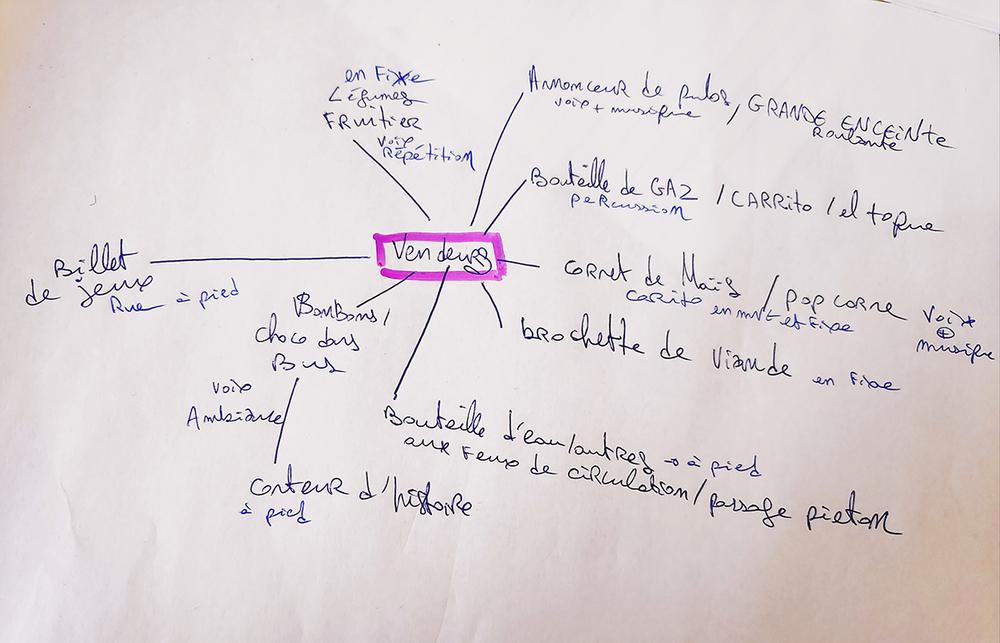 en Fixe
Légumes
FRuitier
voix
Répétition
Annonceur de pubs, GRANDE ENCEINTE
voix + musique
Roulante
Bouteille de GAZ / CARRito / el toque
peRcussion
Vendeurs
Billet
de jeux
Rue à pied
coRnet de Maïs / pop coRne
caRito en mvt et Fixe
voix
+
musique
bRochette de viande en Fixe
BonBons /
choco dans
Bus
voix
Ambiance
conteuR d'histoire
à pied
Bouteille d'eau/autres → à pied
aux Feux de ciRculation / passage pieton